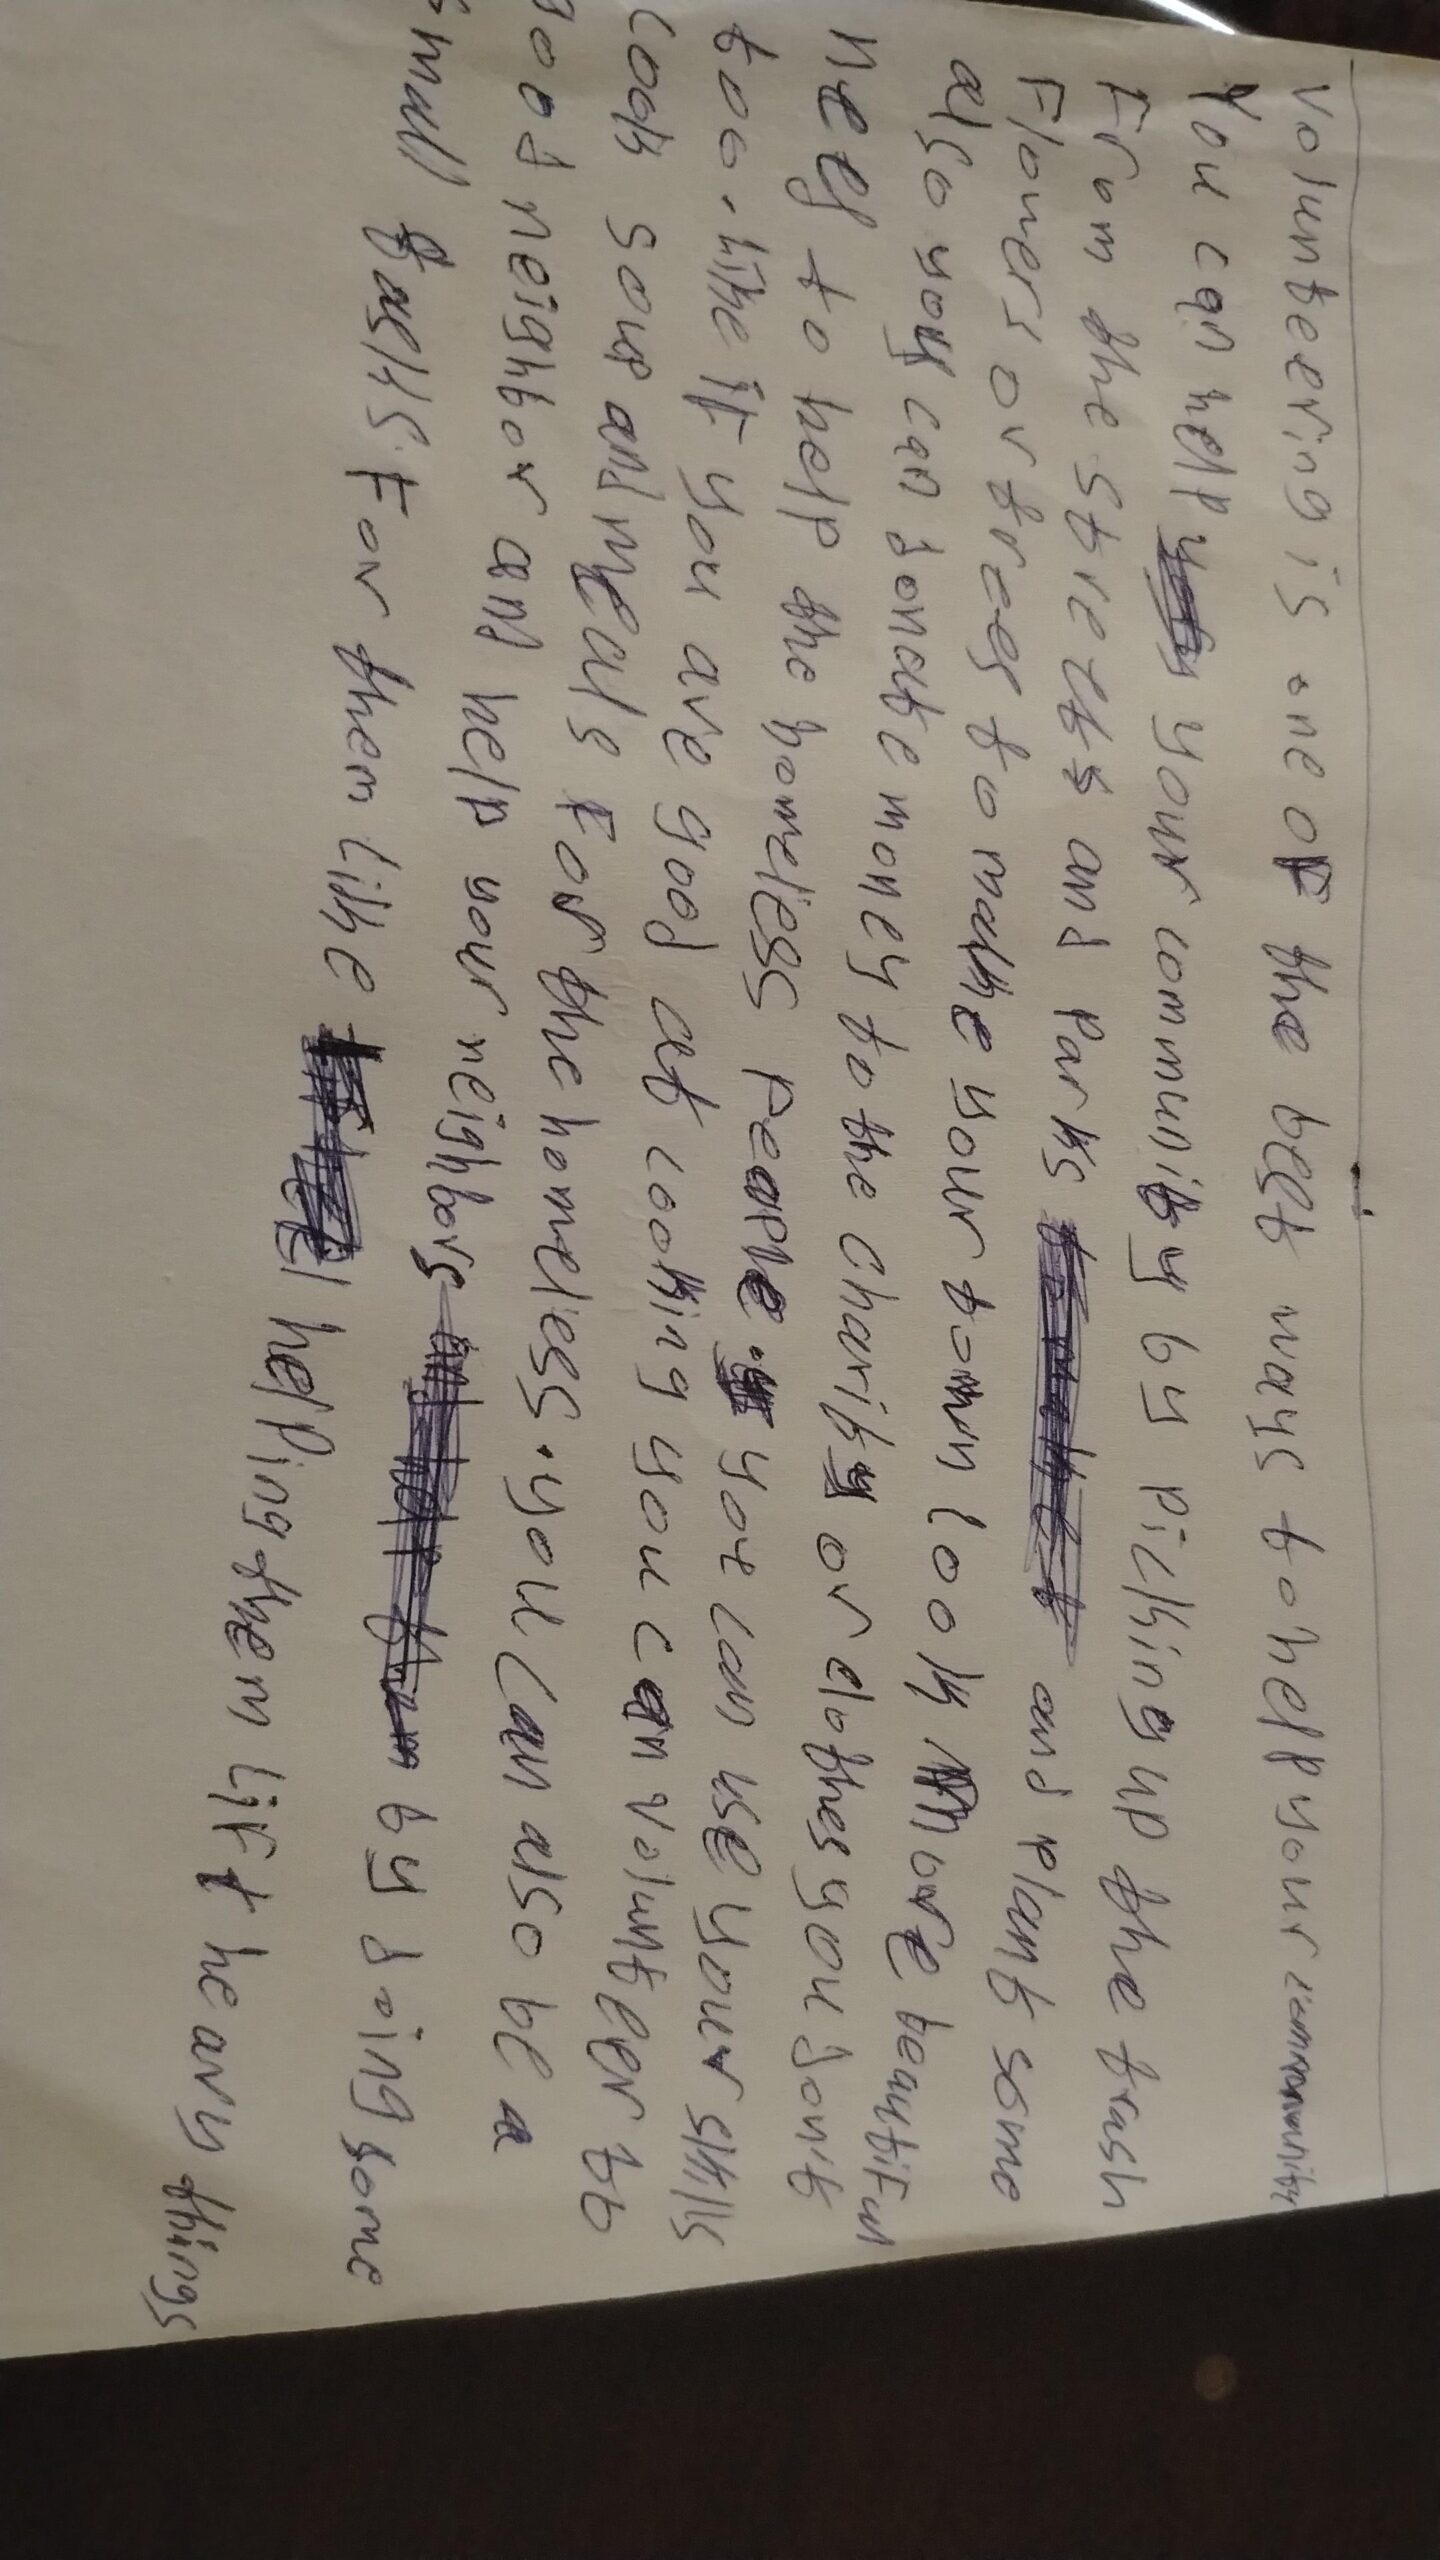 Volunteering is one of the best ways to help your community
You can help your community by picking up the trash
From the streets and parks and plant some
Flowers or trees to make your town look more beautiful
also you can donate money to the charity or clothes you dont
need to help the homeless people. you can use your skills
too. like if you are good at cooking you can volunteer to
cook soup and meals For the homeless. you can also be a
good neighbor and help your neighbors by doing some
small tasks. For them like helping them lift heavy things